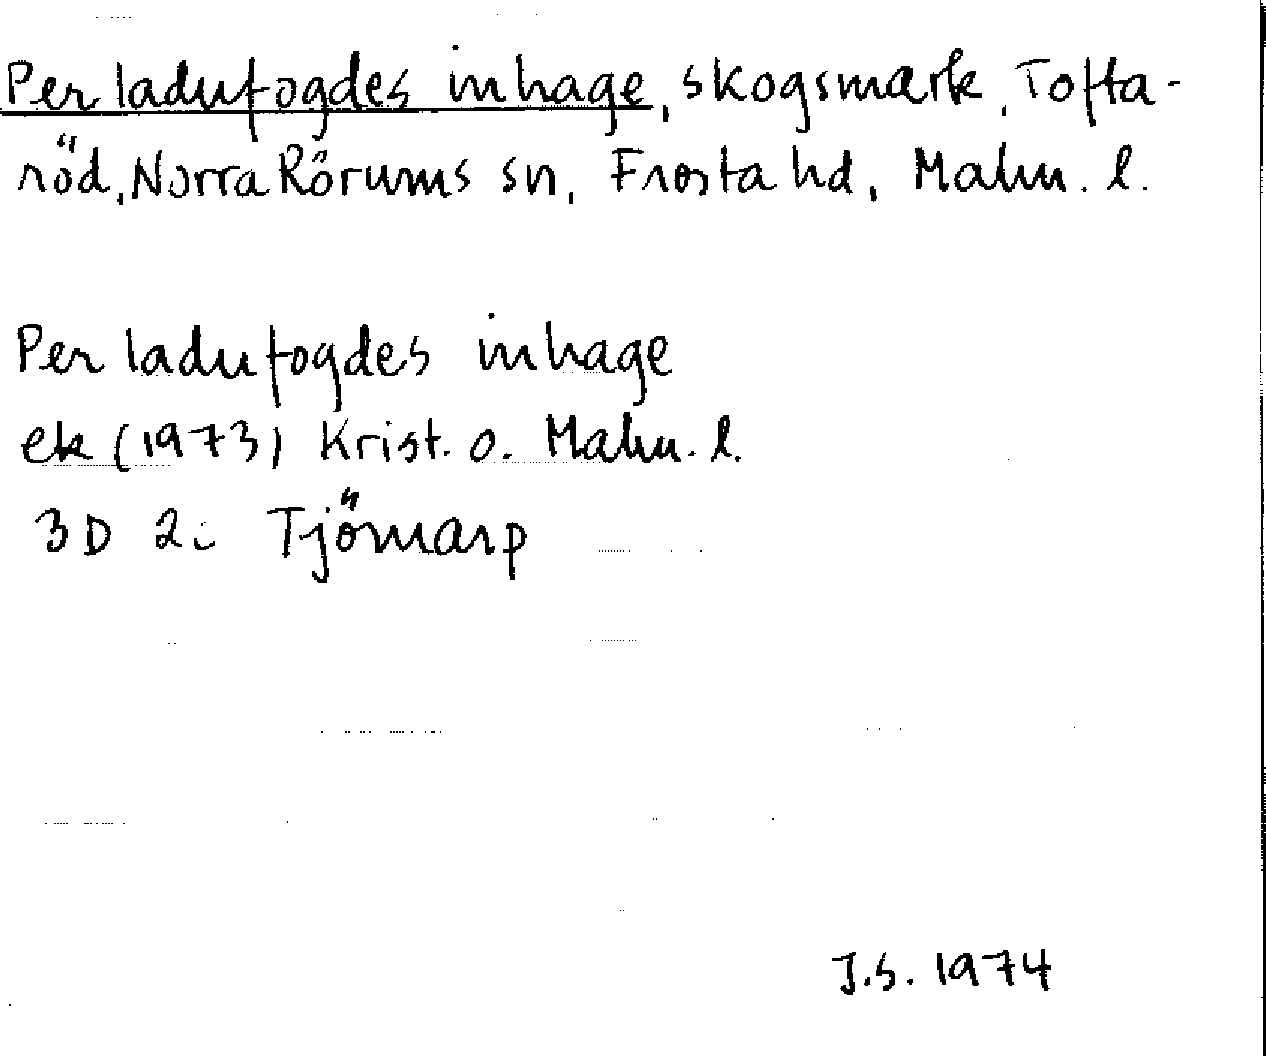 Per ladufogdes inhage, skogsmark, Tofta-
röd, Norra Rörums sn, Frosta hd, Malm. l.
Per ladufogdes inhage
ek (1973) Krist. o. Malm. l.
3D 2i Tjörnarp
J.S. 1974